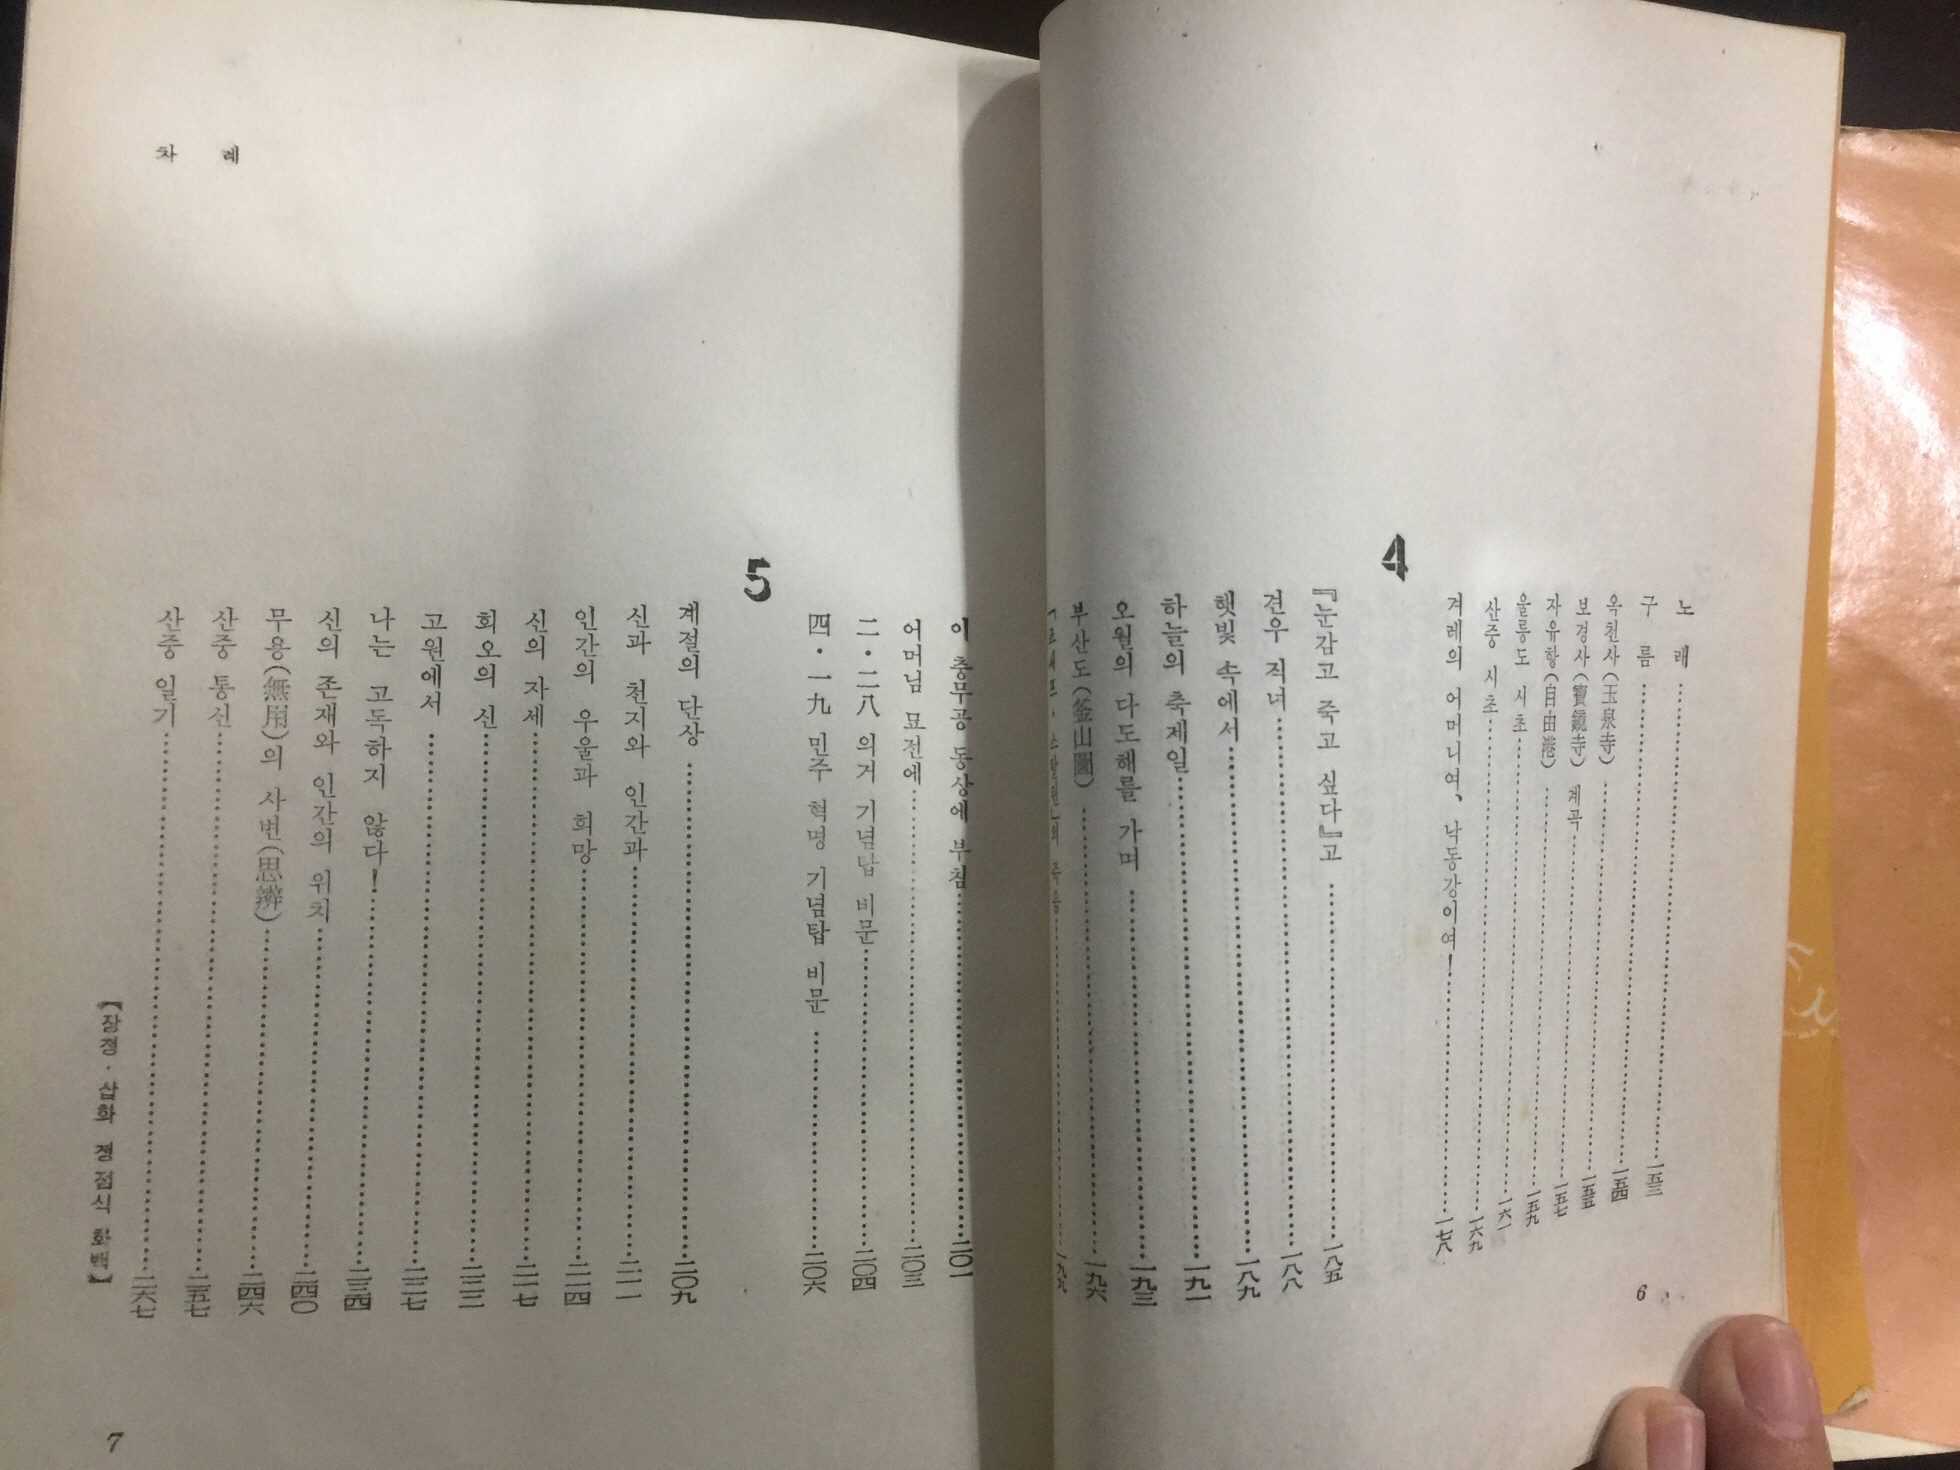 노 래 ……… 一五三
구 름 ……… 一五四
옥천사(玉泉寺) ……… 一五五
보경사(寶鏡寺) 계곡 ……… 一五七
자유항(自由港) ……… 一五九
울릉도 시초 ……… 一六一
산중 시초 ……… 一六九
겨레의 어머니여, 낙동강이여! ……… 一七八
4
『눈감고 죽고 싶다』고 ……… 一八五
견우 직녀 ……… 一八八
햇빛 속에서 ……… 一八九
하늘의 축제일 ……… 一九一
오월의 다도해를 가며 ……… 一九三
부산도(釜山圖) ……… 一九六
의 죽음 ………
6
차 례
이 충무공 동상에 부침 ……… 二〇一
어머님 묘전에 ……… 二〇三
二·二八 의거 기념탑 비문 ……… 二〇四
四·一九 민주 혁명 기념탑 비문 ……… 二〇六
5
계절의 단상 ……… 二〇九
신과 천지와 인간과 ……… 二一一
인간의 우울과 희망 ……… 二一四
신의 자세 ……… 二一七
회오의 신 ……… 二二二
고원에서 ……… 二二七
나는 고독하지 않다! ……… 二三四
신의 존재와 인간의 위치 ……… 二四〇
무용(無用)의 사변(思辨) ……… 二四六
산중 통신 ……… 二五七
산중 일기 ……… 二六七
【장정·삽화 정점식 화백】
7